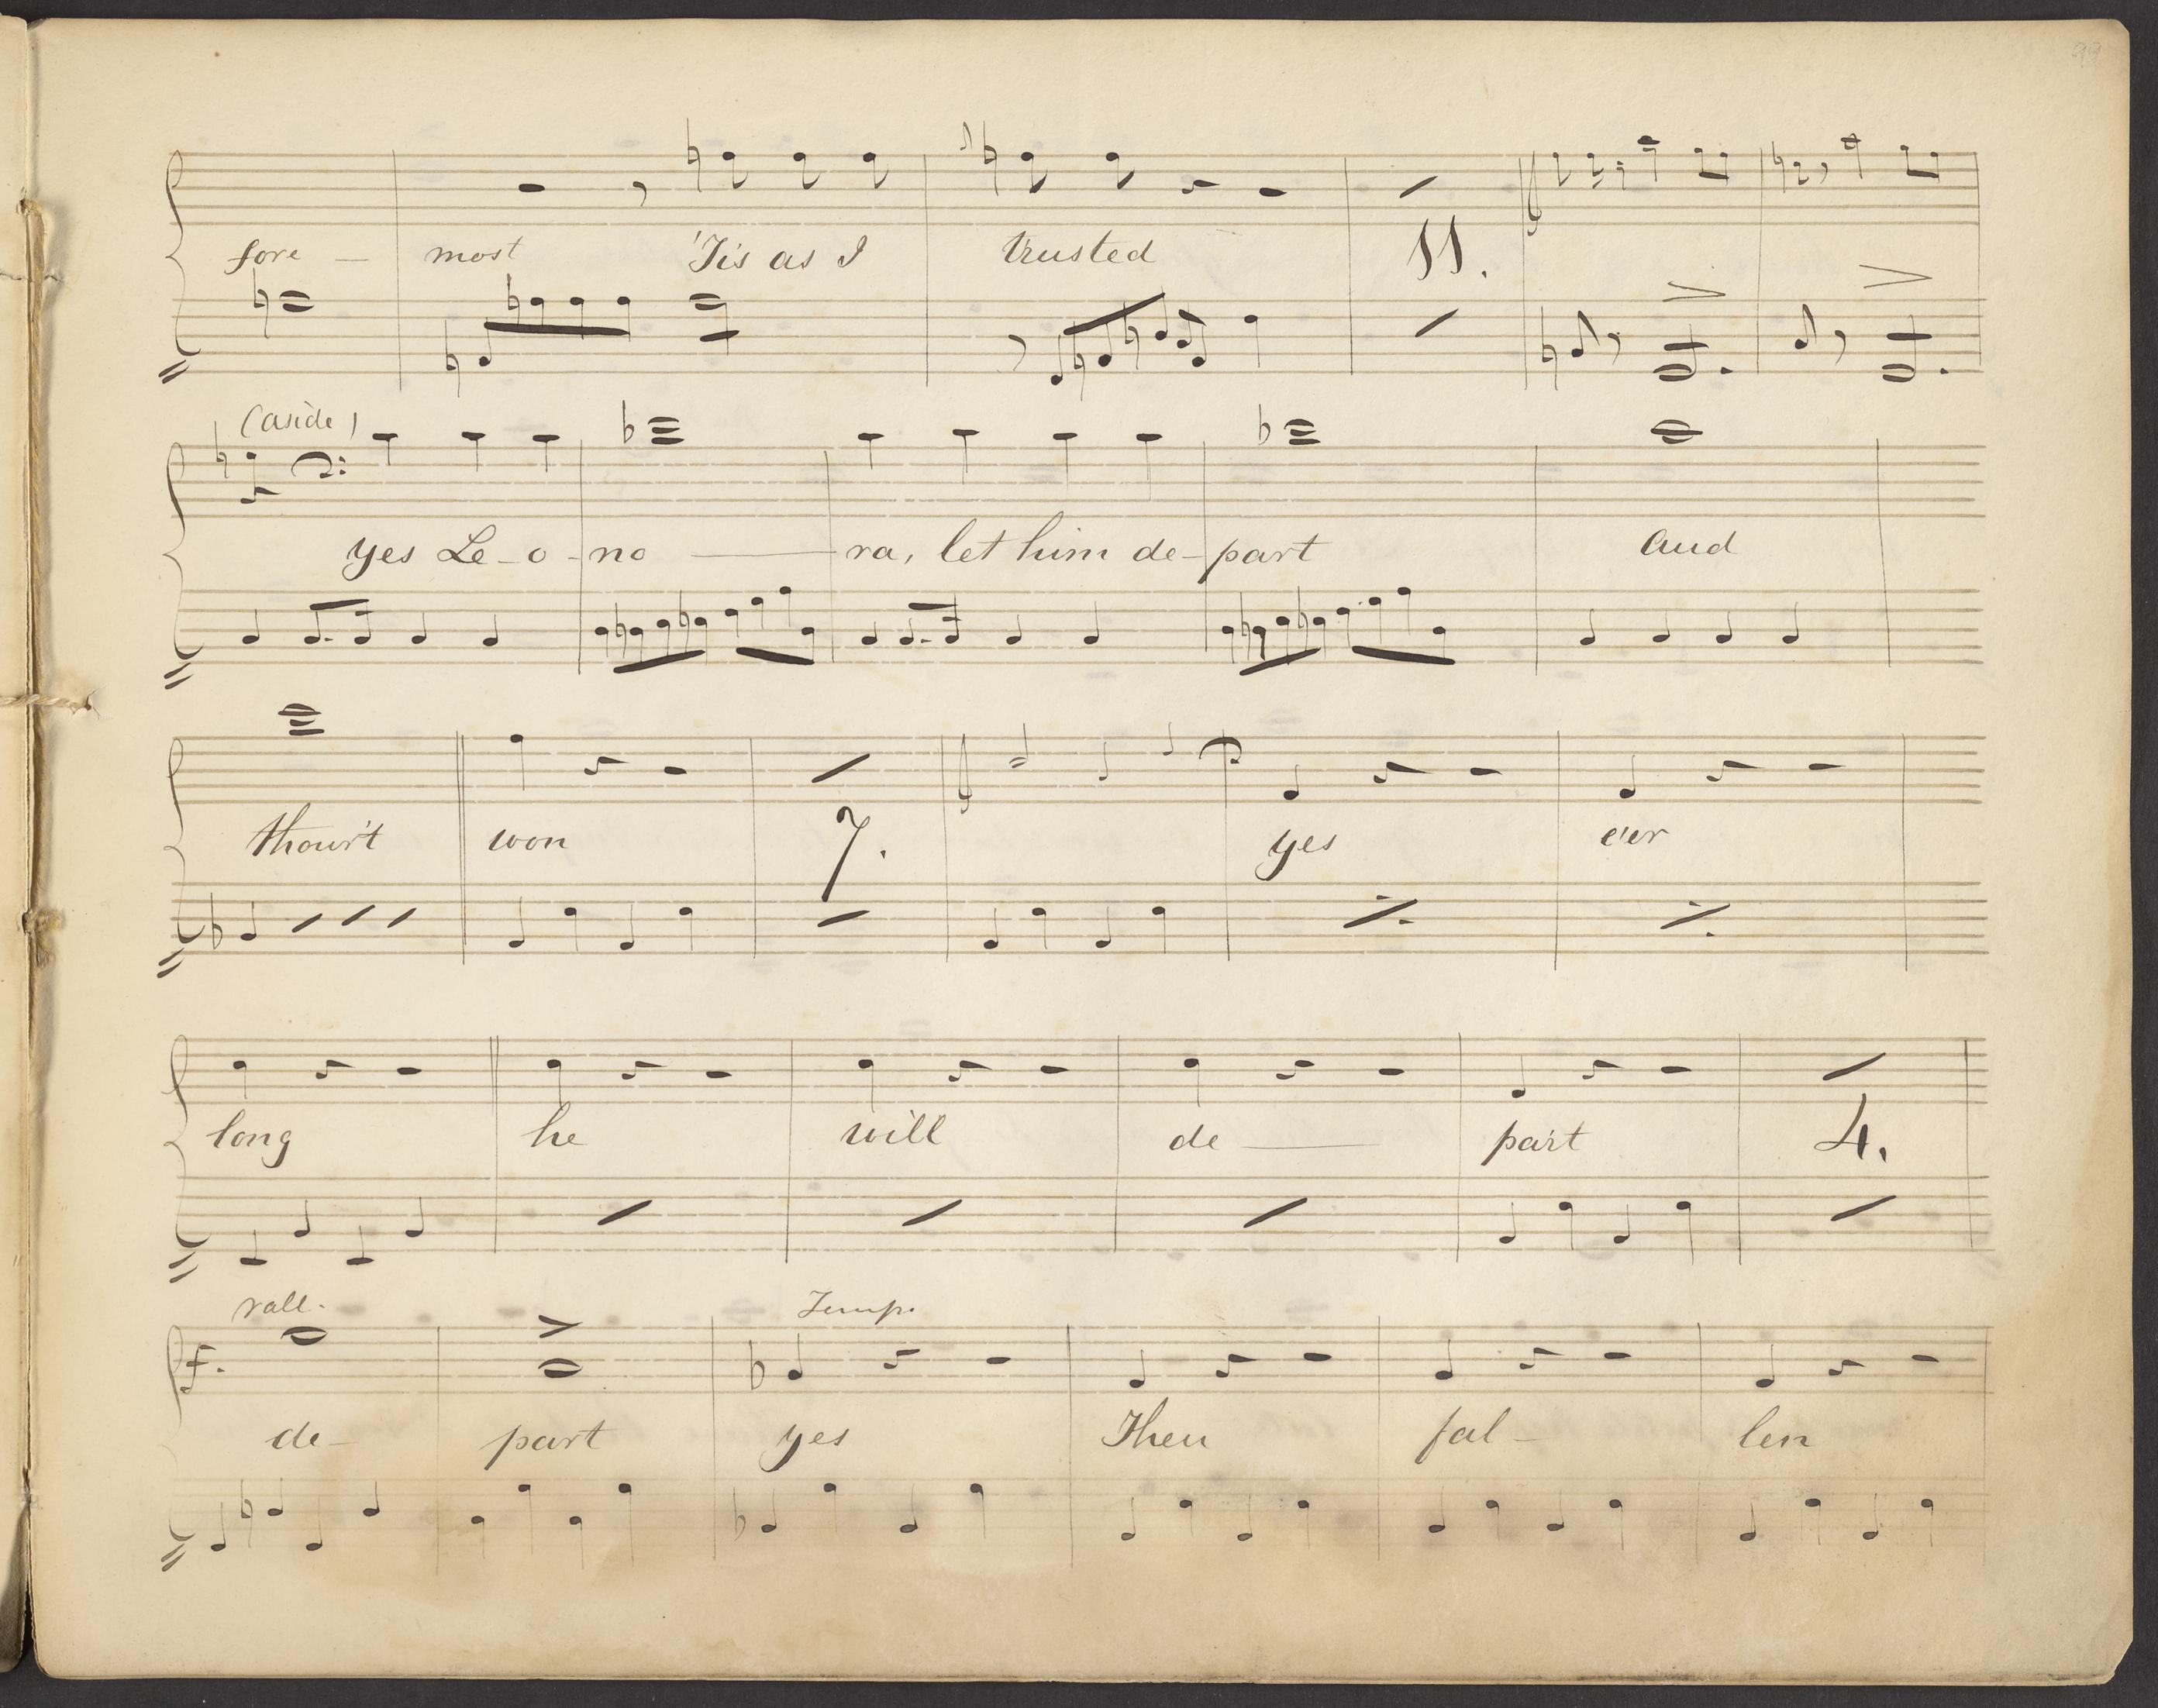 99
fore — most 'Tis as I trusted 11.
(aside)
yes Le - o - no — ra, let him de - part and
thou'rt won 7. yes e'er
long he will de — part 4.
rall. Temp.
f.
de - part yes Then fal - len